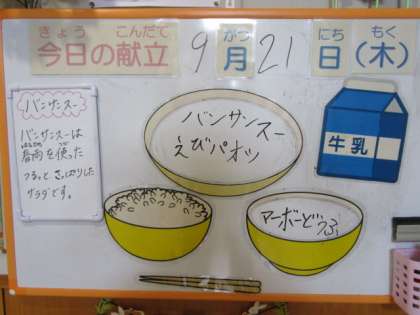 きょう こんだて がつ にち もく
今日の献立 9月21日(木)
バンサンスー
バンサンスーは
はるさめ つか
春雨を使った
つるっと さっぱりした
サラダです。
バンサンスー
えびパオツ
牛乳
マーボーどうふ